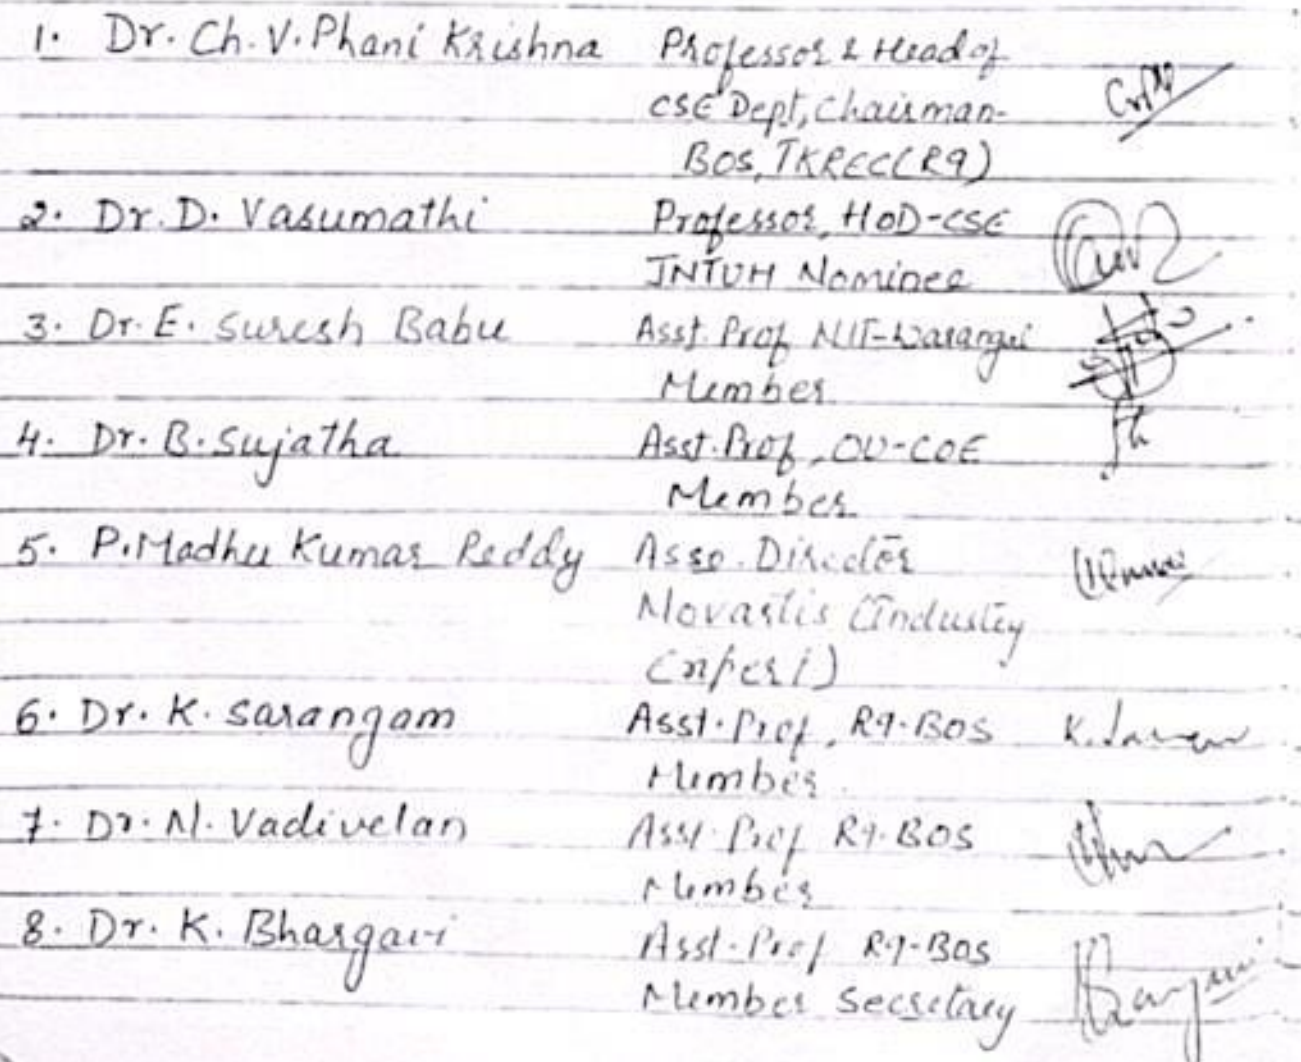 1. Dr. Ch. V. Phani Krishna Professor & Head of
CSE Dept, Chairman-
BOS, TKREC(R9)
2. Dr. D. Vasumathi Professor, HOD-CSE
JNTUH Nominee
3. Dr. E. Suresh Babu Asst. Prof NIT-Warangal
Member
4. Dr. B. Sujatha Asst. Prof, OU-COE
Member
5. P. Madhu Kumar Reddy Asso. Director
Novartis (Industry
6. Dr. K. Sarangam Asst. Prof, R9-BOS
Member
7. Dr. N. Vadivelan Asst. Prof R9-BOS
Member
8. Dr. K. Bhargavi Asst. Prof R9-BOS
Member Secretary